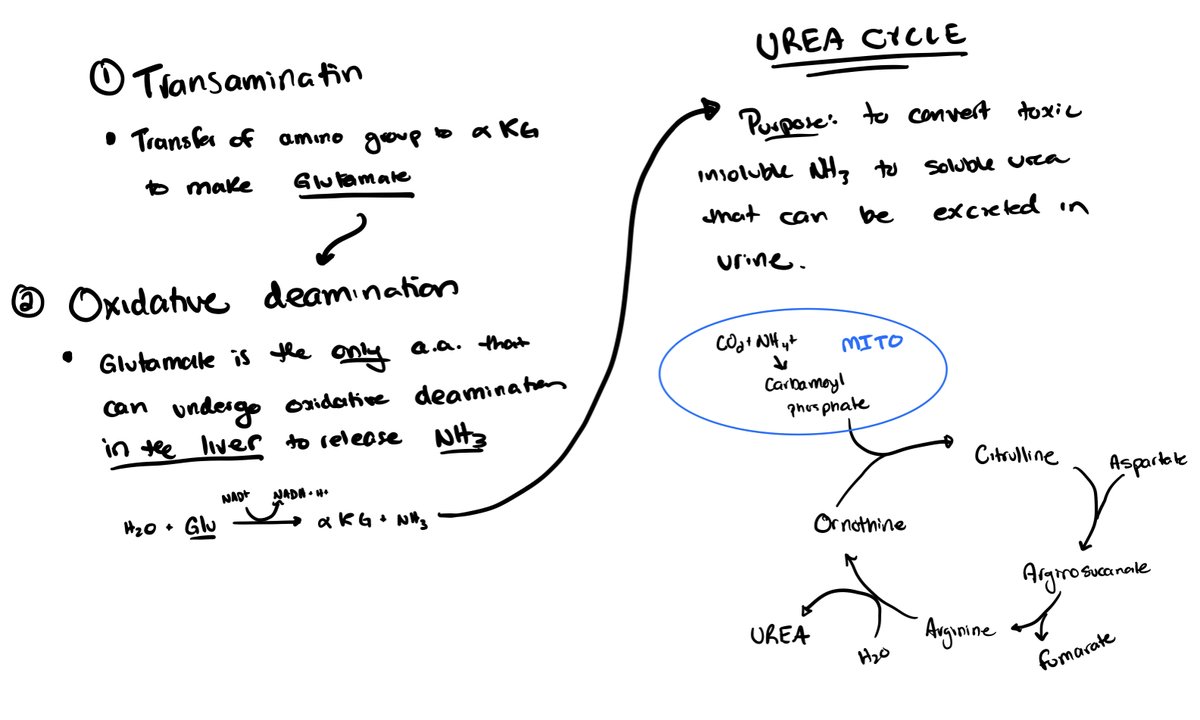 ① Transaminatin
• Transfer of amino group to α KG
to make Glutamate
② Oxidative deamination
• Glutamate is the only a.a. that
can undergo oxidative deamination
in the liver to release NH₃
NAD+ NADH + H+
H₂O + Glu → α KG + NH₃
UREA CYCLE
Purpose: to convert toxic
insoluble NH₃ to soluble urea
that can be excreted in
urine.
CO₂ + NH₄+ MITO
Carbamoyl
phosphate
Citrulline
Aspartate
Ornothine
Arginosuccinate
Arginine
fumarate
UREA
H₂O